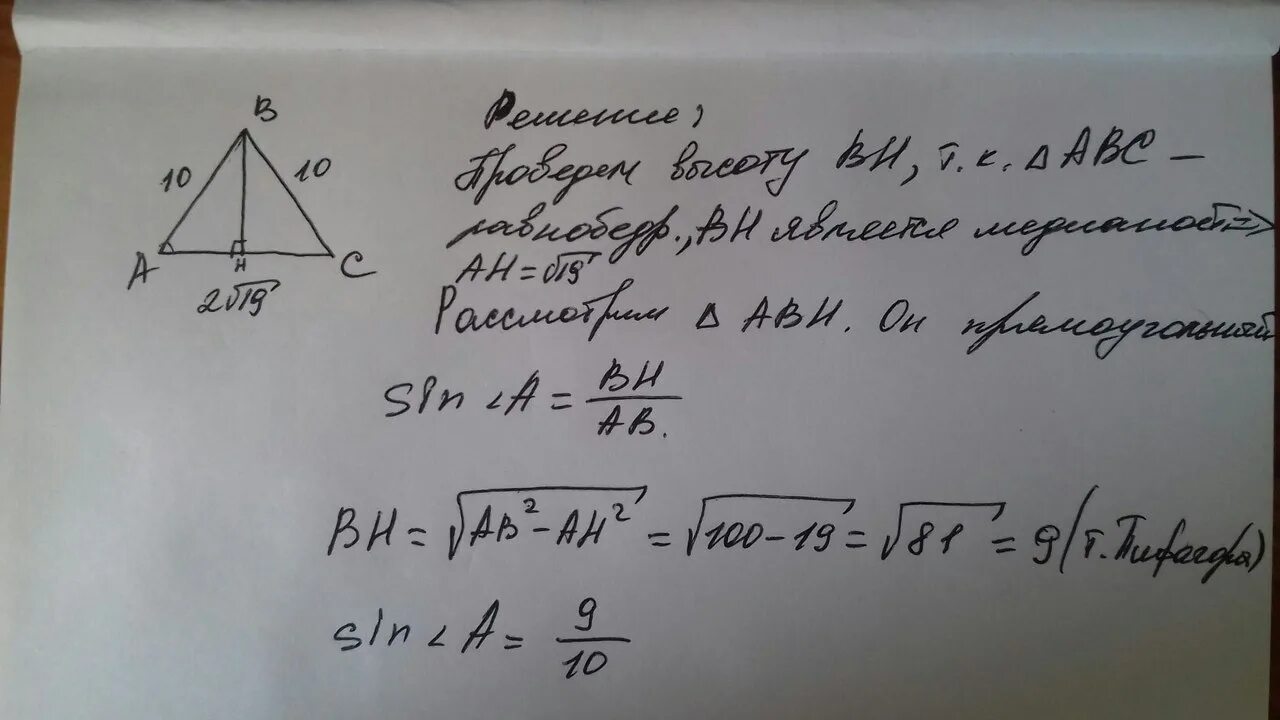 B
10 10
A H C
2√19
Решение;
Проведем высоту BH, т.к. △ ABC –
равнобедр., BH является медианой =>
AH = √19
Рассмотрим △ ABH. Он прямоугольный
sin ∠A = BH / AB.
BH = √(AB² – AH²) = √(100 – 19) = √81 = 9 (т. Пифагора)
sin ∠A = 9 / 10